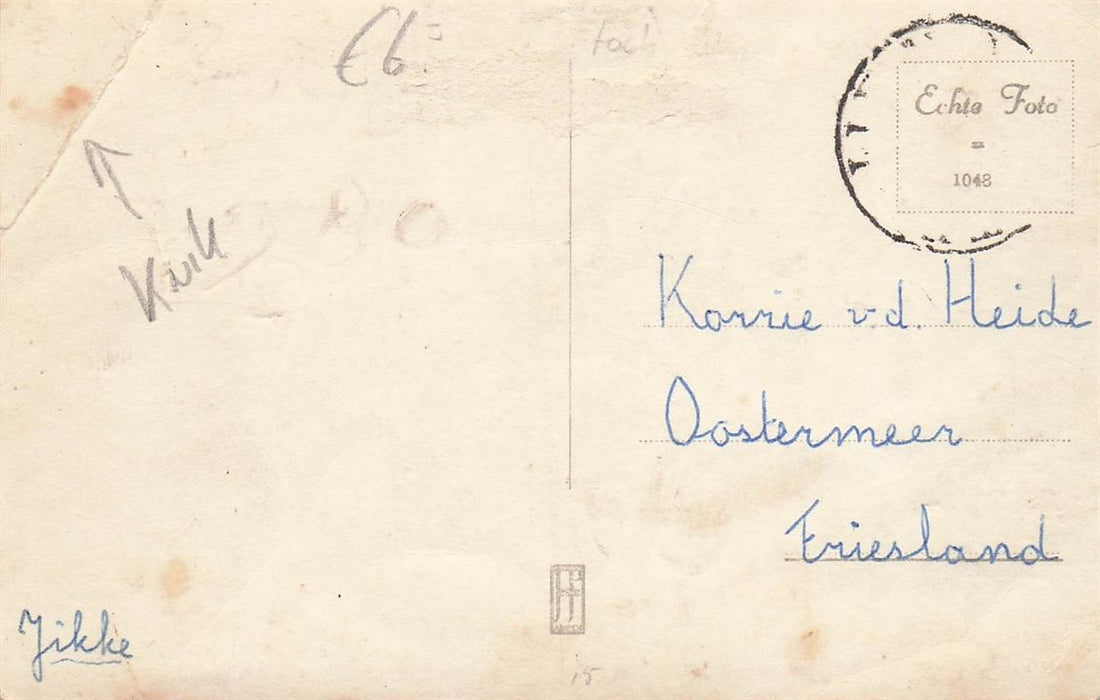 €6.=
Echte Foto
=
1048
Knik
Korrie v.d. Heide
Oostermeer
Friesland
Jikke
15